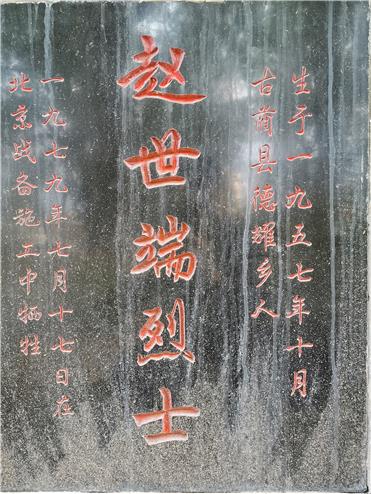 生于一九五七年十月
古蔺县德耀乡人
赵世端烈士
一九七九年七月十七日在
北京战备施工中牺牲